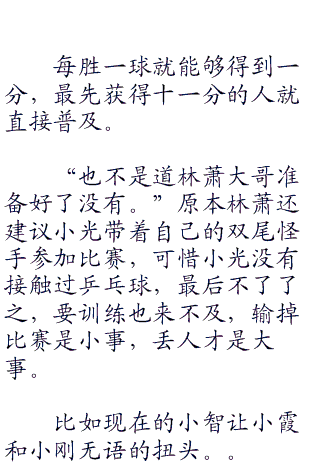 每胜一球就能够得到一
分，最先获得十一分的人就
直接普及。
“也不是道林萧大哥准
备好了没有。”原本林萧还
建议小光带着自己的双尾怪
手参加比赛，可惜小光没有
接触过乒乓球，最后不了了
之，要训练也来不及，输掉
比赛是小事，丢人才是大
事。
比如现在的小智让小霞
和小刚无语的扭头。。